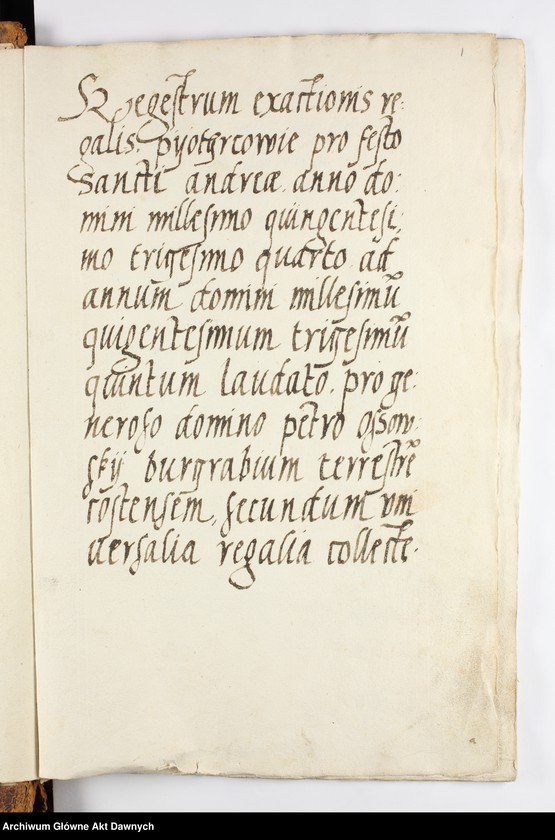 1
Regestrum exactionis re:
galis. pijotgrcowie pro festo
Sancti andreæ. anno do:
mini millesimo quingentesi:
mo trigesimo quarto ad
annum domini millesimũ
quigentesimum trigesimũ
quintum laudato. pro ge:
neroso domino petro Ossow:
skij burgrabium terrestrẽ
costensem, secundum vni
uersalia regalia collecte.
Archiwum Główne Akt Dawnych